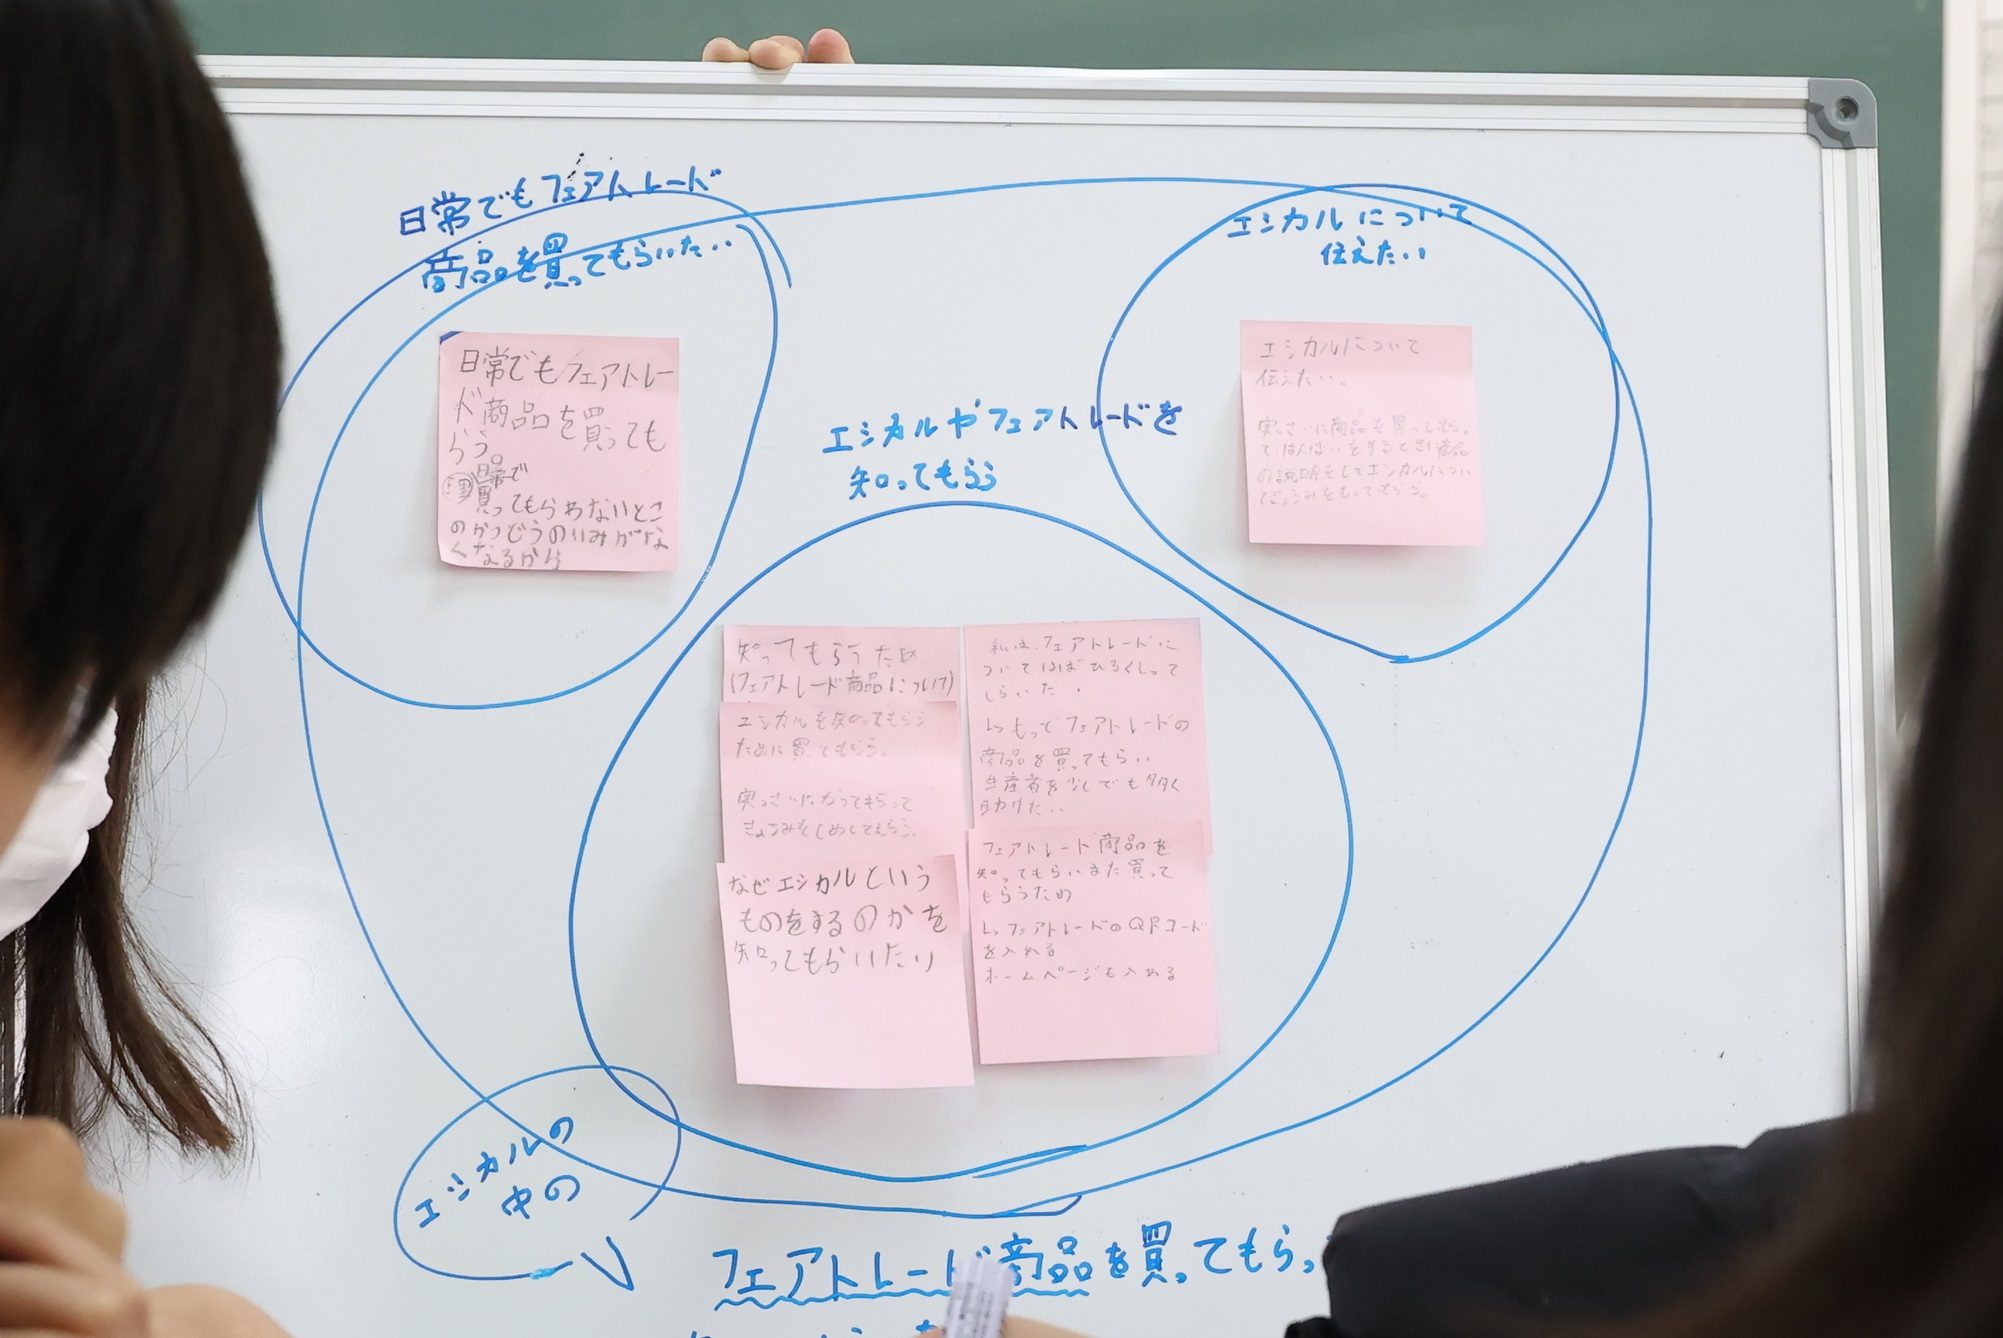 日常でもフェアトレード
商品を買ってもらいたい
エシカルについて
伝えたい
日常でもフェアトレー
ド商品を買っても
らう。
日常で
買ってもらわないとこ
のかつどうのいみがな
くなるから
エシカルについて
伝えたい。
実さいに商品を買ってもらっ
て、はんばいをするときに商品
の説明をしてエシカルについ
てきょうみをもってもらう。
エシカルやフェアトレードを
知ってもらう
知ってもらうため
(フェアトレード商品について)
エシカルを知ってもらう
ために買ってもらう。
実さいにかってもらって
なぜエシカルという
ものをするのかを
知ってもらいたい
私は、フェアトレードに
ついてはばひろくしって
もらいたい
↳もっとフェアトレードの
商品を買ってもらい
生産者を少しでも多く
助けたい
フェアトレード商品を
知ってもらいまた買って
もらうため
↳フェアトレードのQRコード
を入れる
ホームページも入れる
エシカルの
中の
フェアトレード商品を買ってもらっ